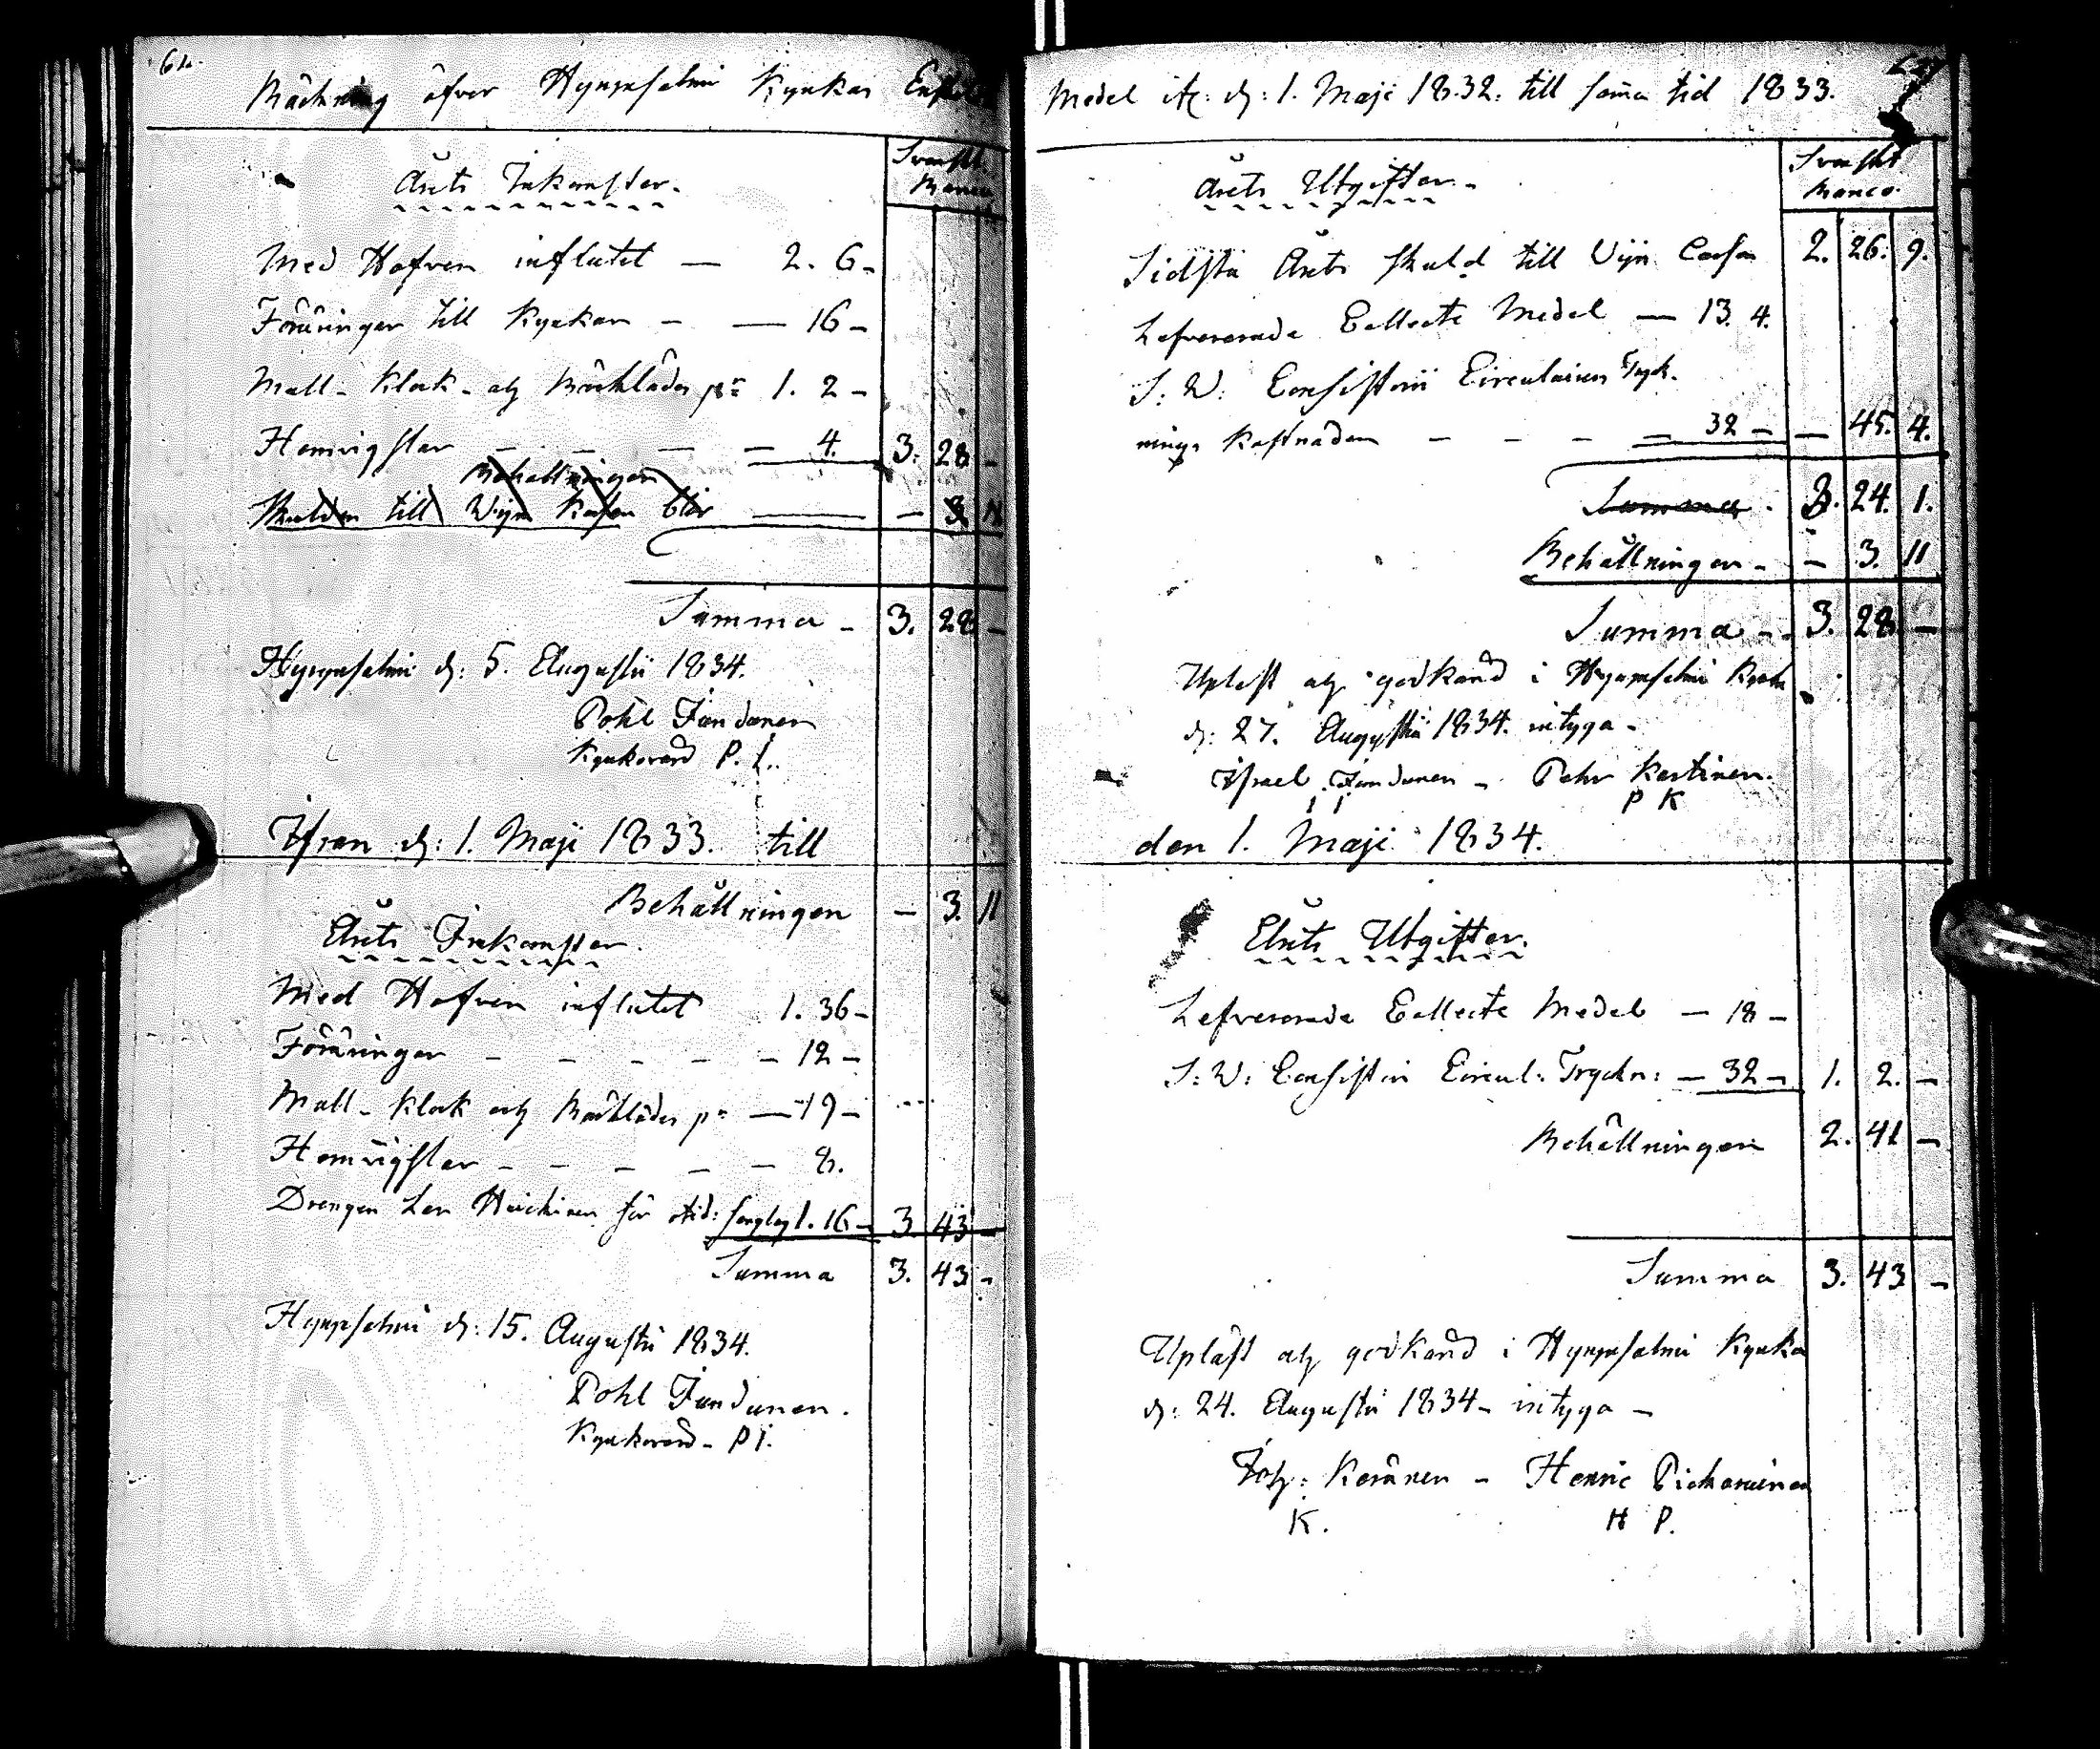 Räckning öfver Hyrynsalmi Kyrkas Enskilda
Årets Inkomster.
Svenskt
Banco
Med Hafven influtit — 2. 6 -
Föräringar till Kyrkan - — 16 -
Mull- Klock- och Bårklädes pr 1. 2 -
Hemvigslar — — — 4. 3. 28 -
Behållningen
Skulden till Vijn Kassan blir — - 3 11
Summa - 3. 28 -
Hyrynsalmi d: 5. Augustii 1834.
Pohl Jundunen
Kyrkovärd P. I.
Ifrån d: 1. Maji 1833. till
Behållningen — 3. 11
Årets Inkomster.
Med Hafven influtit 1. 36 -
Föräringar - - - - - 12 -
Mull- Klock och Bårklädes pr — 19 -
Hemvigslar - - - - - 8.
Drengen Lars Heickinen för otid: senglag 1. 16 - 3. 43 -
Summa 3. 43 -
Hyrynsalmi d: 15. Augustii 1834.
Pohl Jundunen.
Kyrkovärd - P I.
Medel ifr: d: 1. Maji 1832. till sam̄a tid 1833.
Årets Utgifter.
Svenskt
Banco.
Sidsta Årets skuld till Vijn Cassan 2. 26. 9.
Lefvererade Collecte Medel — 13. 4.
S: W: Consistorii Circulairen Tryck-
nings kostnaden - - - — 32 - — 45. 4.
Summa . 3. 24. 1.
Behållningen - — 3. 11
Summa - 3. 28 —
Upläst och godkänd i Hyrynsalmi Kyrka
d: 27. Augustii 1834. intyga -
Israel Jundunen - Pehr Kestinen.
I I P K
den 1. Maji 1834.
Årets Utgifter.
Lefvererade Collecte Medel — 18 -
S: W: Consistorii Circul: Tryckn: — 32 - 1. 2. -
Behållningen 2. 41 -
Summa 3. 43 -
Upläst och godkänd i Hyrynsalmi Kyrka
d: 24. Augustii 1834 - intyga -
Joh: Keränen - Henric Pickarainen
K. H P.